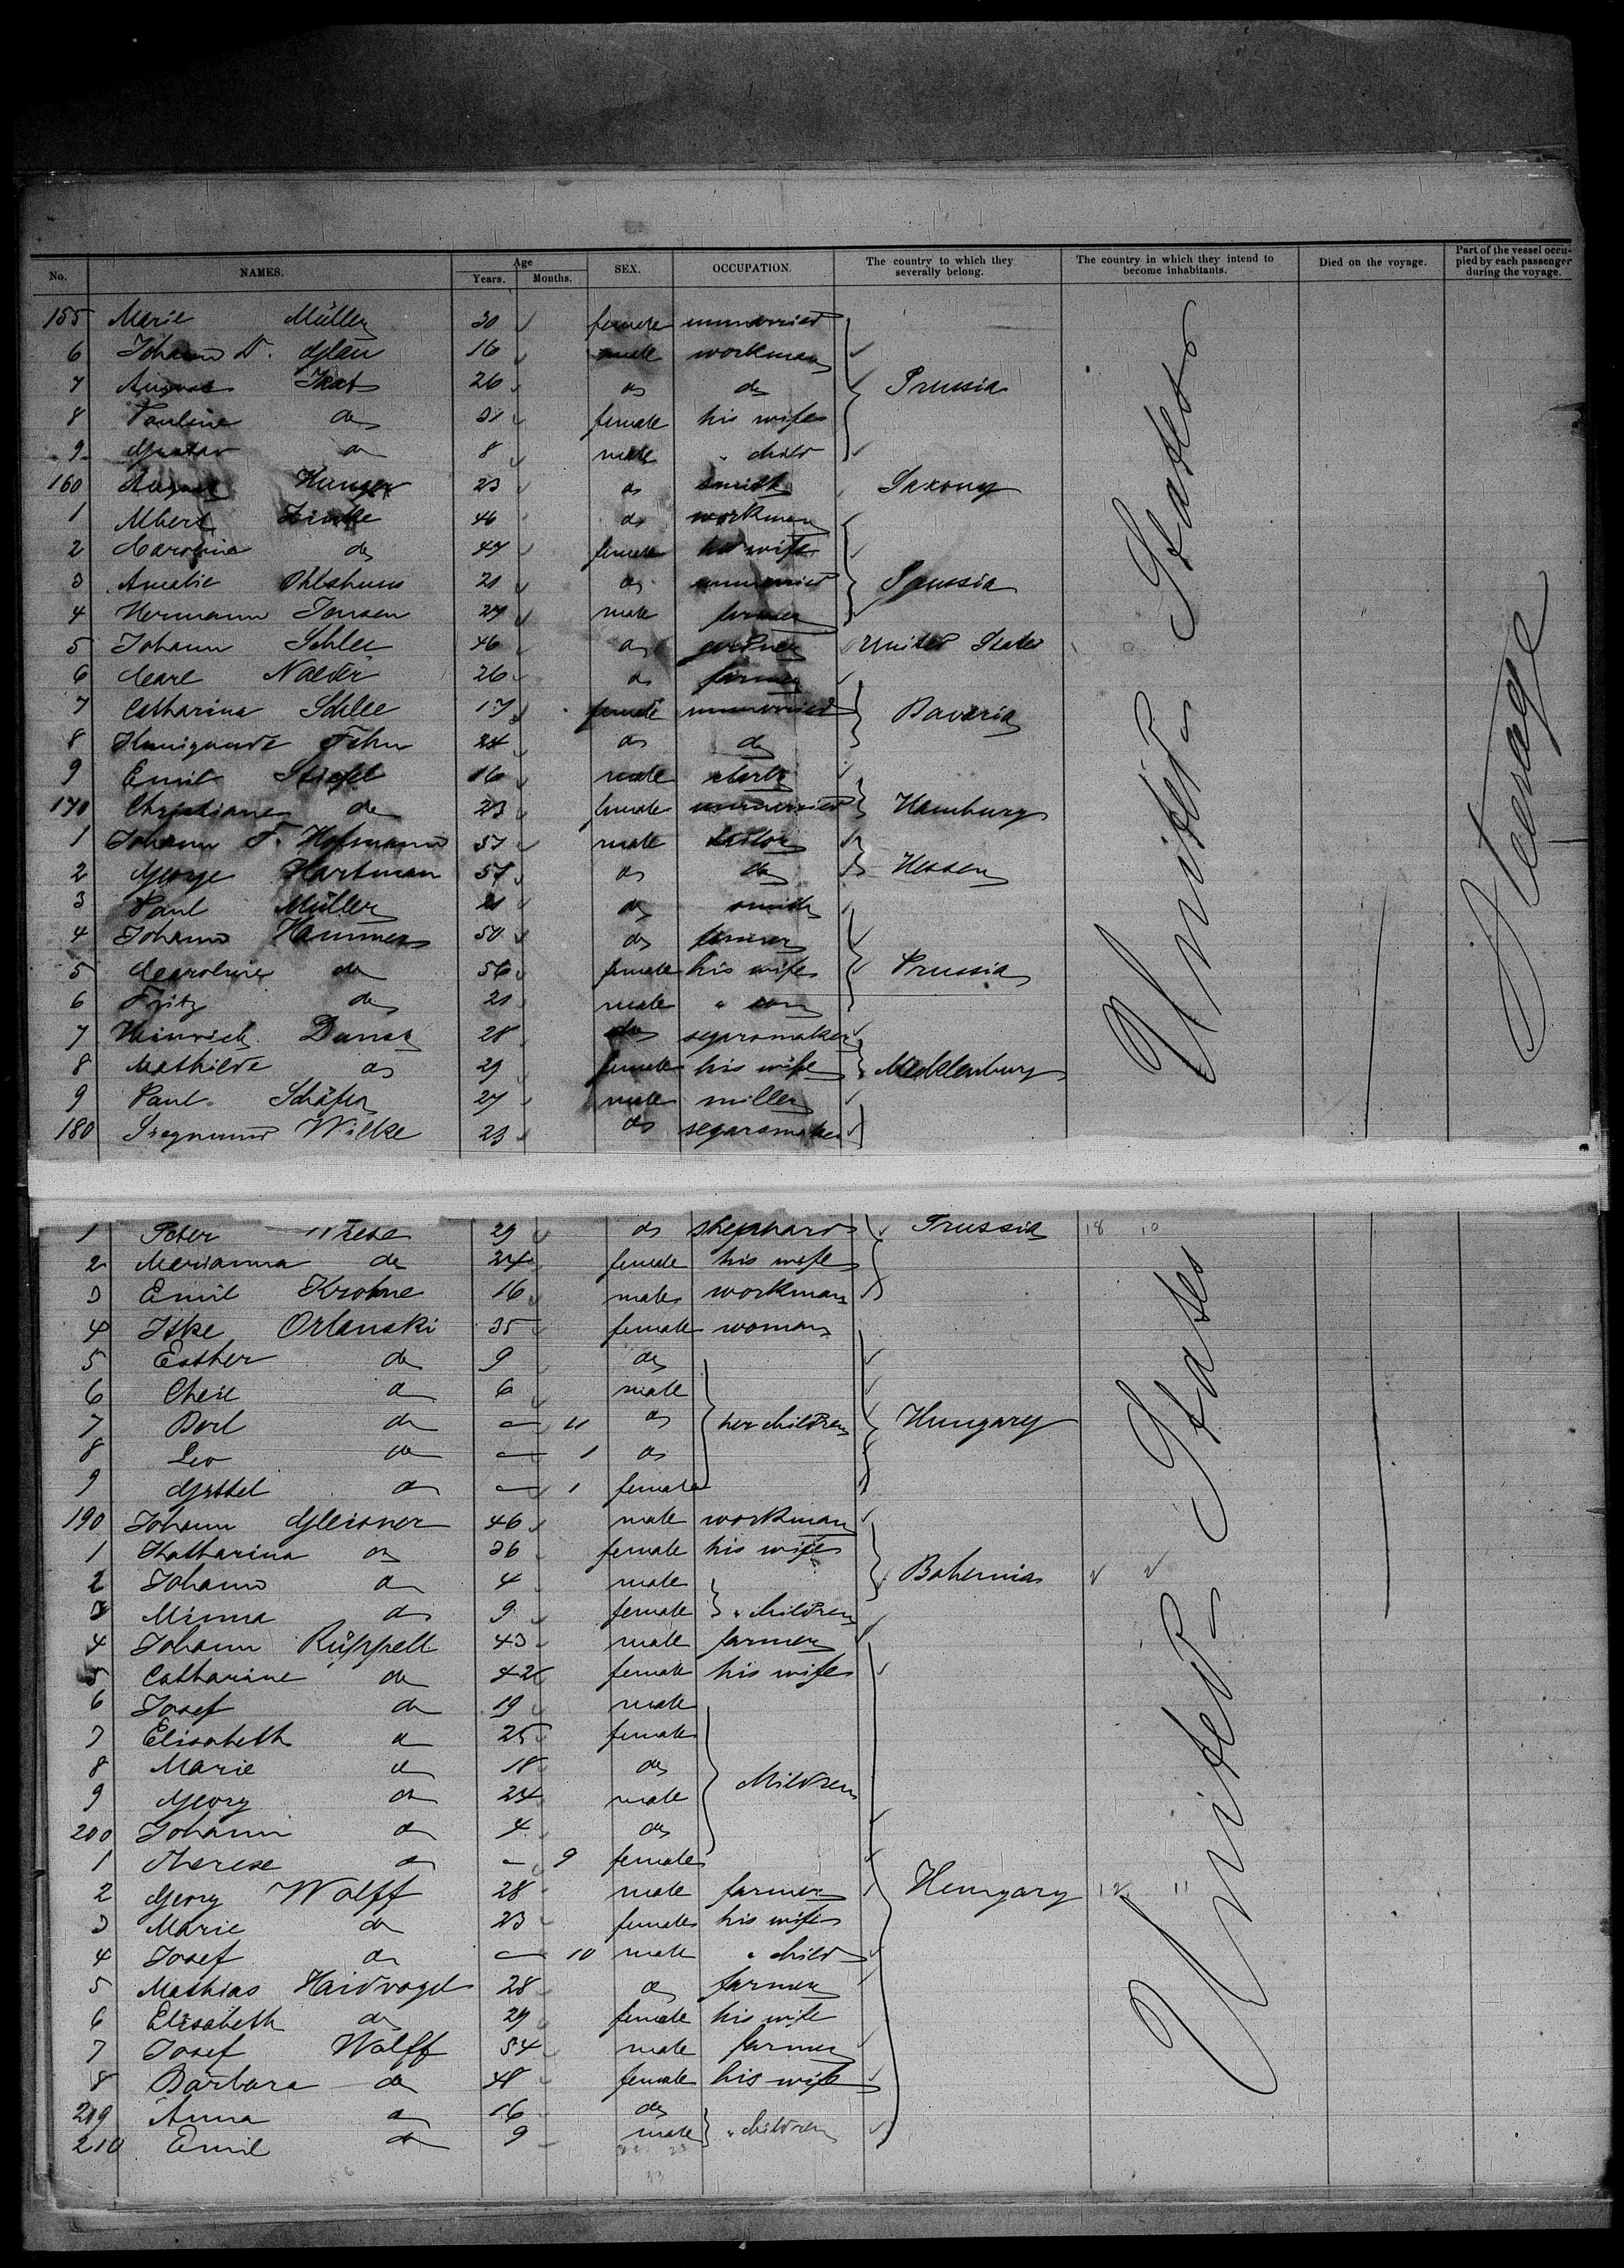 No. NAMES. Age Years. Months. SEX. OCCUPATION. The country to which they severally belong. The country in which they intend to become inhabitants. Died on the voyage. Part of the vessel occupied by each passenger during the voyage.
155 Marie Müller 30 female unmarried
6 Johann D. 16 male workman
7 August 26 do do Prussia
8 Pauline do 31 female his wife
9 Gustav do 8 male " child
160 August Hunger 23 do smith Saxony
1 Albert Zinke 46 do workman
2 Caroline do 47 female his wife
3 Amalie 21 do unmarried Prussia
4 Hermann Jonsen 27 male farmer
5 Johann Schlee 46 do United States
6 Carl Naeder 26 do farmer
7 Catharina Schlee 17 female unmarried Bavaria
8 Kunigunde Fehn 24 do do
9 Emil Stiefel 16 male clerk
170 Christiane do 23 female unmarried Hamburg
1 Johann F. Hofmann 57 male tailor
2 George Hartman 57 do do Hessen
3 Paul Müller 21 do smith
4 Johann Hammer 50 do farmer
5 Caroline do 56 female his wife Prussia
6 Fritz do 21 male " son
7 Heinrich 28 do segarsmaker
8 Mathilde do 29 female his wife Mecklenburg
9 Paul Schäfer 27 male miller
180 Siegmund Wilke 23 do segarsmaker
United States
Steerage
1 Peter 29 do shephard Prussia 18 10
2 Marianna do 24 female his wife
3 Emil Krohne 16 male workman
4 Iske Orlanski 35 female woman
5 Esther do 9 do
6 do 6 male
7 Berl do — 11 do her children Hungary
8 Leo do — 1 do
9 do — 1 female
190 Johann Gleisner 46 male workman
1 Katharina do 36 female his wife
2 Johann do 4 male Bohemia
3 Minna do 9 female " children
4 Johann Rüppell 43 male farmer
5 Catharine do 42 female his wife
6 Josef do 19 male
7 Elisabeth do 25 female
8 Marie do 18 do children
9 Georg do 24 male
200 Johann do 4 do
1 Therese do — 9 female
2 Georg Wolff 28 male farmer Hungary
3 Marie do 23 female his wife
4 Josef do — 10 male " child
5 Mathias Haidvogel 28 do farmer
6 Elisabeth do 29 female his wife
7 Josef Wolff 54 male farmer
8 Barbara do 48 female his wife
209 Anna do 16 do
210 Emil do 9 male " children
United States